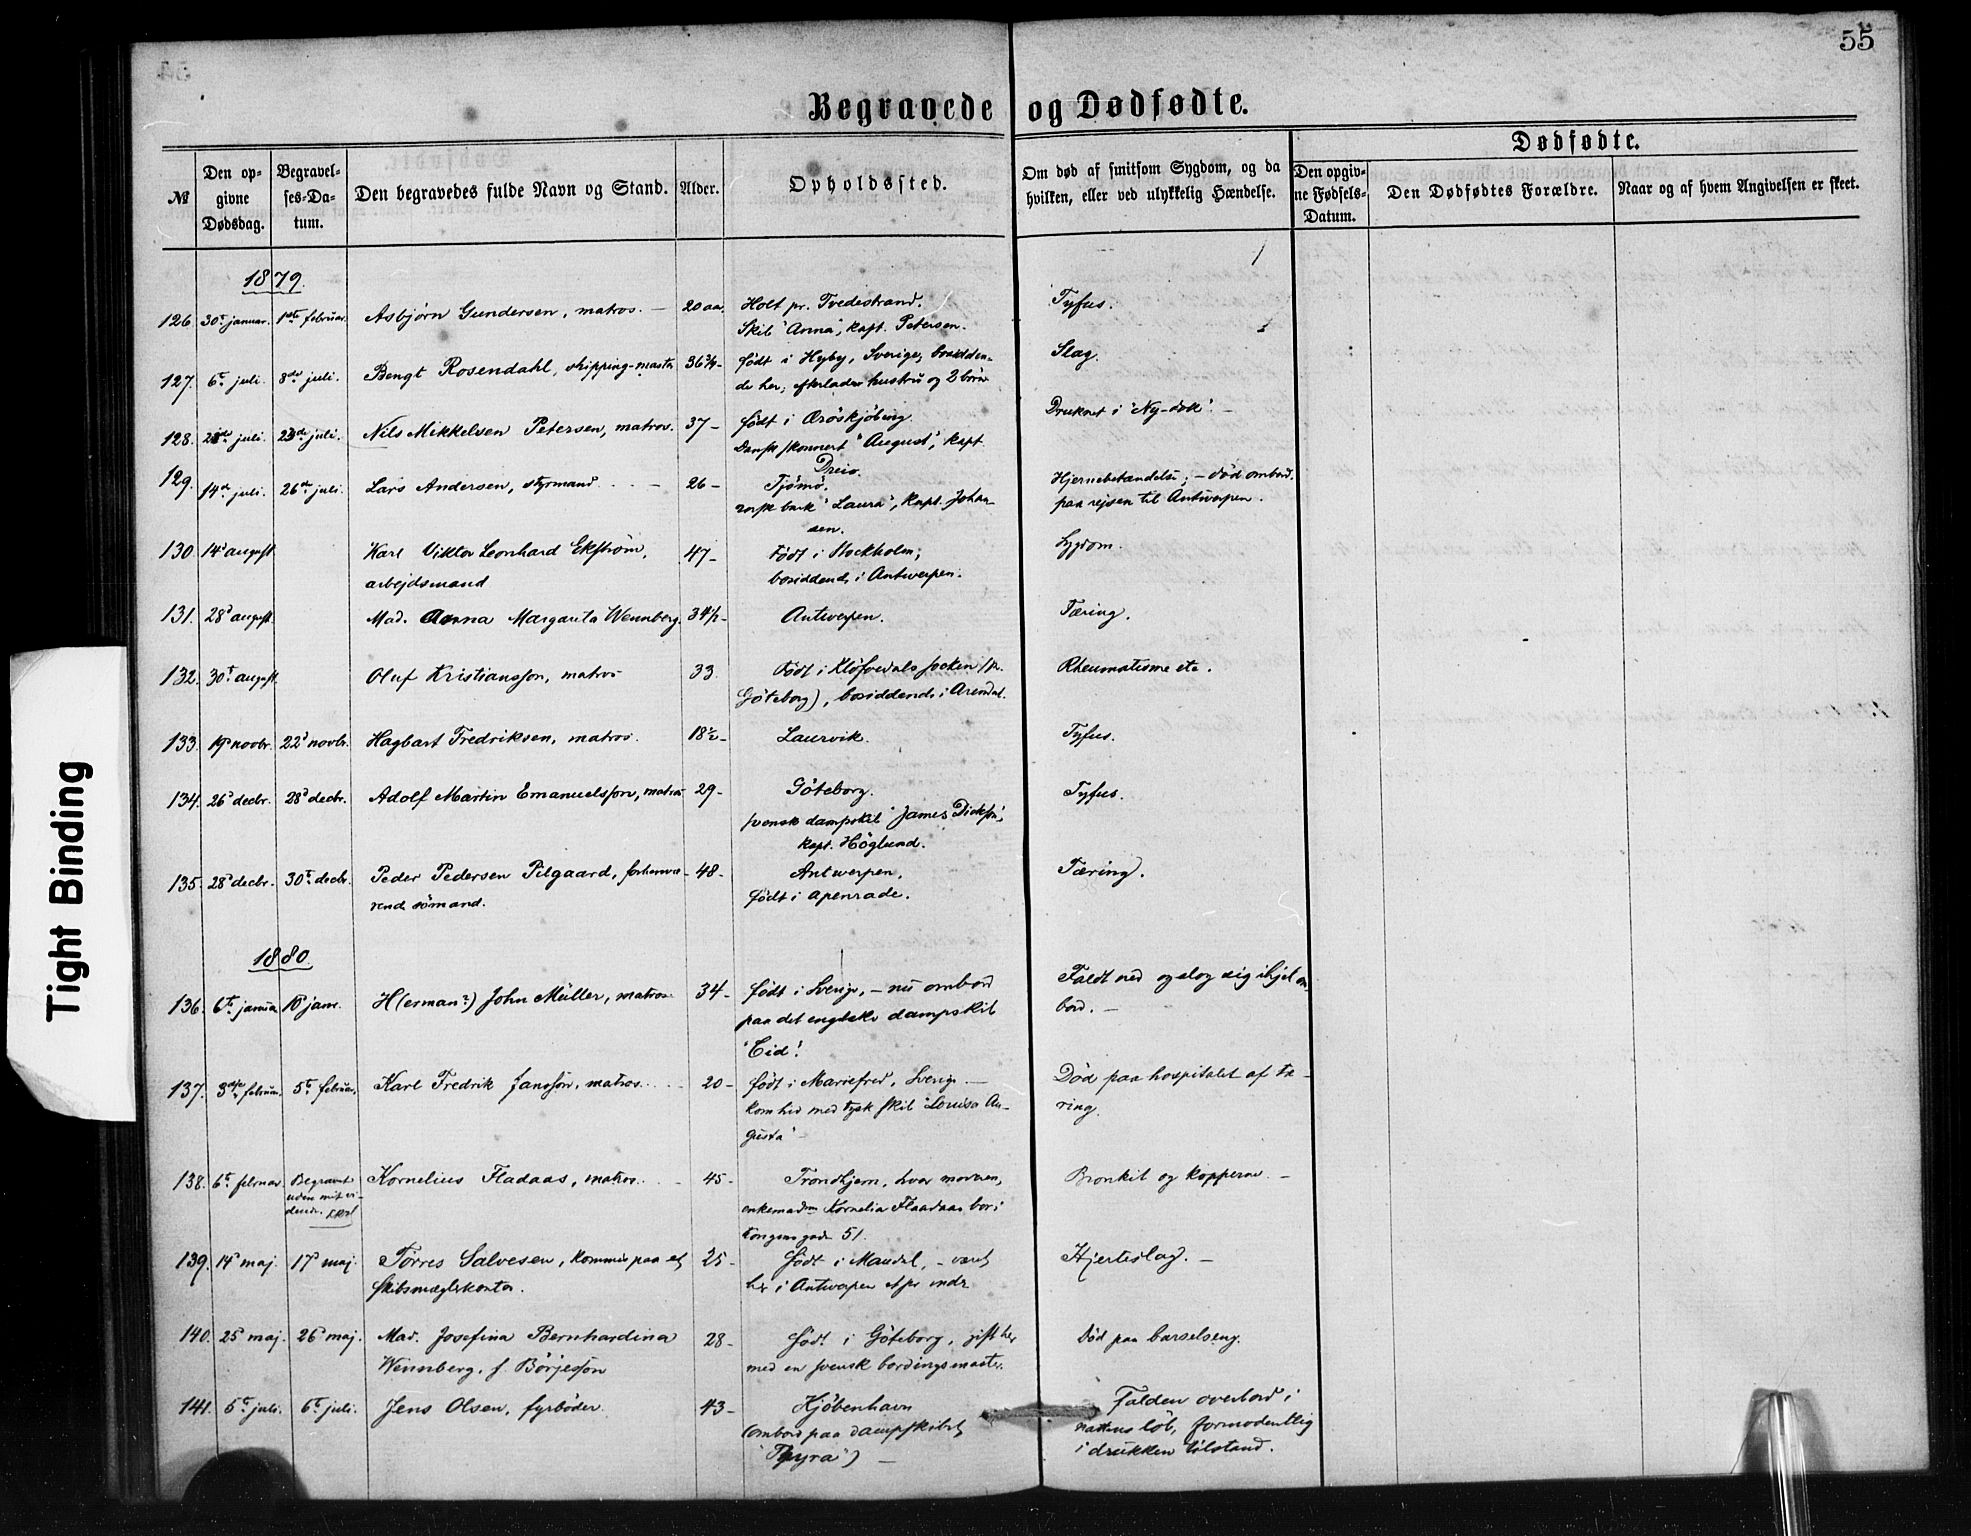 55
Begravede og Dødfødte.
Dødfødte.
№
Den opgivne Dødsdag.
Begravelses-Datum.
Den begravedes fulde Navn og Stand.
Alder.
Opholdssted.
Om død af smitsom Sygdom, og da hvilken, eller ved ulykkelig Hændelse.
Den opgivne Fødsels-Datum.
Den Dødfødtes Forældre.
Naar og af hvem Angivelsen er skeet.
1879.
126. 30te januar. 1ste februar. Asbjørn Gundersen, matros. — 20 aar. Holt pr. Tvedestrand. Tyfus.
Skib "Anna", kapt. Petersen.
127. 6te juli. 8de juli. Bengt Rosendahl, shipping-master 36¾- født i Hyby, Sverige, bosidden- Slag.
de her; efterlader hustru og 2 børn
128. juli. 23de juli. Nils Mikkelsen Petersen, matros. 37- født i Ærøskjøbing. Druknet i "Ny-dok". -
Dansk skonnert "August", kapt.
Dreio.
129. 14de juli. 26de juli. Lars Andersen, styrmand. - 26- Tjømø. Hjernebetændelse; - død ombord.
norsk bark "Laura", kapt. Johan- paa rejsen til Antwerpen.
sen.
130. 14d august. Karl Viktor Leonhard Ekström, 47- Født i Stockholm; Sygdom.
arbejdsmand bosiddende i Antwerpen.
131. 28d august. Mad. Anna Margareta Wennberg. 34½- Antwerpen. Tæring.
132. 30t august. Oluf Kristiansson, matros 33. Født i Klöfvedals socken (pr. Rheumatisme etc.
Göteborg), bosiddende i Arendal.
133. 19d novbr. 22d novbr. Hagbart Fredriksen, matros. 18½- Laurvik. Tyfus.
134. 26d decbr. 28d decbr. Adolf Martin Emanuelsson, matros 29- Göteborg. Tyfus.
svensk dampskib "James Dickson",
kapt. Höglund.
135. 28d decbr. 30t decbr. Peder Pedersen Pilgaard, forhenvæ- 48- Antwerpen, Tæring.
rende sömand. født i Apenrade.
1880.
136. 6te januar 10 jan. H(erman?) John Müller, matros 34- født i Sverige, - nu ombord Faldt ned og slog sig ihjel om-
paa det engelske dampskib bord. -
"Cid".
137. 3die februar. 5te februar. Karl Fredrik Jansson, matros. - 20- født i Mariefred, Sverige. - Død paa hospitalet af tæ-
kom hid med tysk skib "Louisa Au- ring.
gusta" -
138. 6te februar Begravet Kornelius Fladaas, matros. - 45- Trondhjem, hvor moren, Bronkit og kopperne. -
uden mit vi- enkemadm Kornelia Flaadaas bor i
dende. Kongens gade 51.
139. 14d maj. 17d maj. Tørres Salvesen, kommis paa et 25- født i Mandal, - været Hjerteslag. -
skibsmæglerkontor. her i Antwerpen
140. 25d maj. 26d maj. Mad. Josefina Bernhardina 28- født i Göteborg, gift her Død paa barselseng.
Wennberg, f. Börjesson med en svensk bordingsmaster.
141. 5te juli. 6te juli. Jens Olsen, fyrbøder. 43- Kjøbenhavn Falden overbord i
(ombord paa dampskibet nattens løb, formodentlig
"Thyra") - i drukken tilstand.
Tight Binding